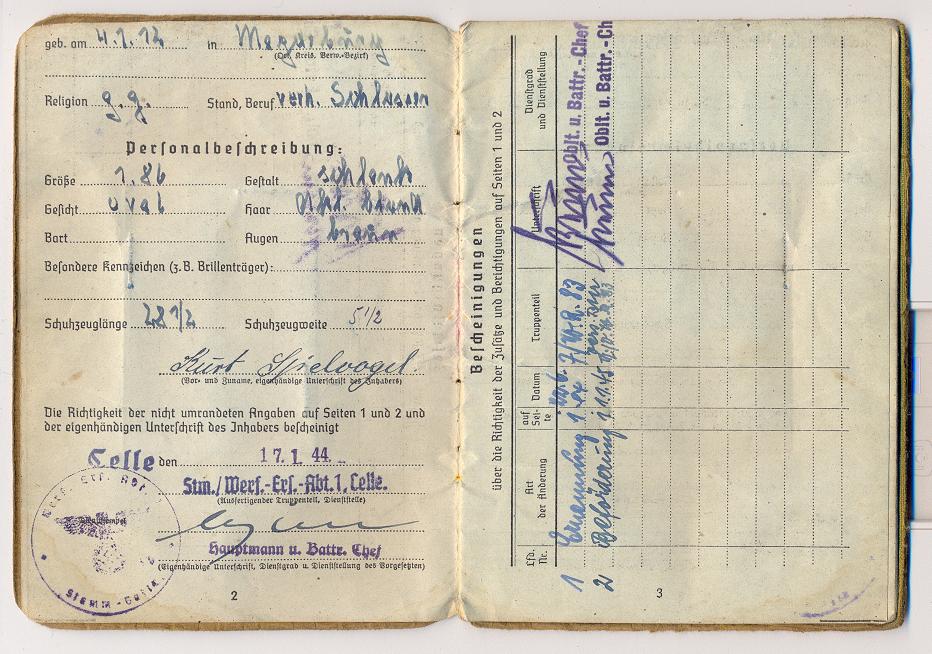 geb. am 4.1.12 in Magdeburg
(Ort, Kreis, Verw.-Bezirk)
Religion g.g. Stand, Beruf verh. Schlosser
Personalbeschreibung:
Größe 1.86 Gestalt schlank
Gesicht oval Haar dkl. blond
Bart Augen braun
Besondere Kennzeichen (z. B. Brillenträger):
Schuhzeuglänge 28 1/2 Schuhzeugweite 5 1/2
Kurt Spielvogel.
(Vor- und Zuname, eigenhändige Unterschrift des Inhabers)
Die Richtigkeit der nicht umrandeten Angaben auf Seiten 1 und 2 und
der eigenhändigen Unterschrift des Inhabers bescheinigt
Celle den 17. 1. 44
Stm./Werf.-Ers.-Abt.1, Celle.
(Ausfertigender Truppenteil, Dienststelle)
Hauptmann u. Battr. Chef
(Eigenhändige Unterschrift, Dienstgrad u. Dienststellung des Vorgesetzten)
2
Bescheinigungen
über die Richtigkeit der Zusätze und Berichtigungen auf Seiten 1 und 2
Lfd. Nr.
Art der Änderung
auf Seite
Datum
Truppenteil
Unterschrift
Dienstgrad und Dienststellung
1 Ernennung 1 83 Oblt. u. Battr.-Chef
2 Beförderung 1 1.1.45 Oblt. u. Battr.-Ch
3